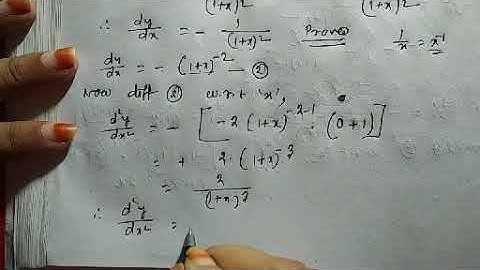 (1+x)² (1+x)²
∴ dy/dx = - 1/(1+x)² Proved 1/x = x⁻¹
dy/dx = - (1+x)⁻² — ②
Now diff ② w.r.t 'x',
d²y/dx² = - [ -2 (1+x)⁻²⁻¹ · (0+1) ]
= + 2 · (1+x)⁻³
= 2/(1+x)³
∴ d²y/dx² =